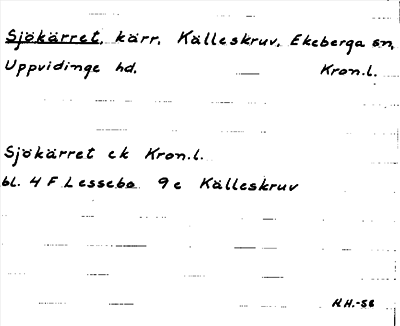 Sjökärret, kärr, Källeskruv, Ekeberga sn,
Uppvidinge hd. Kron.l.
Sjökärret ek Kron.l.
bl. 4 F Lessebo 9e Källeskruv
H.H.-56